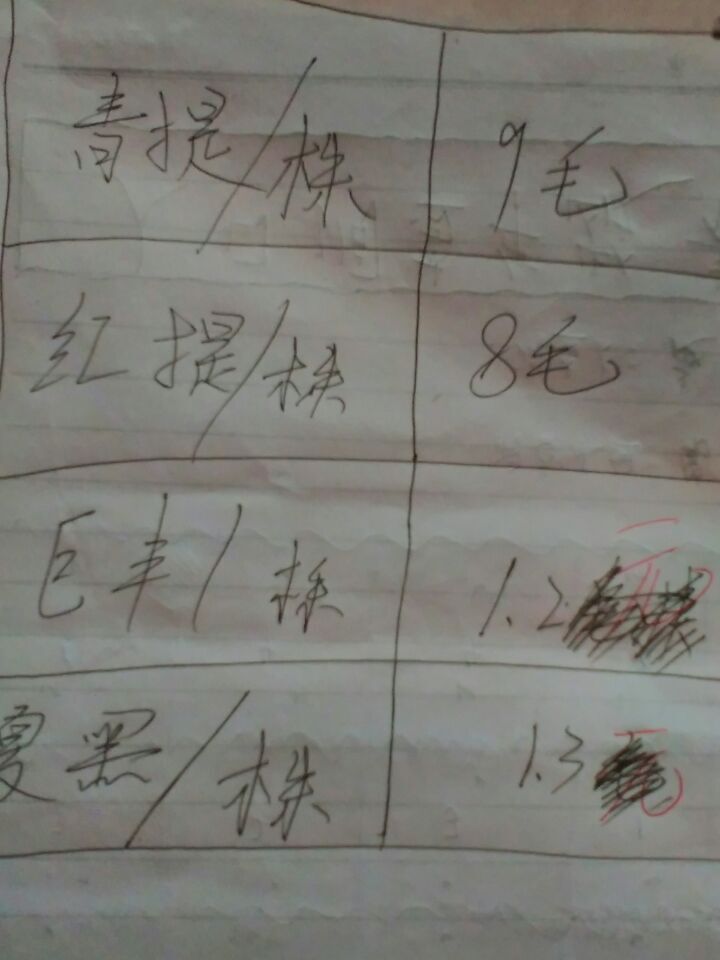 青提/株 9毛
红提/株 8毛
巨丰/株 1.2元
夏黑/株 1.3元